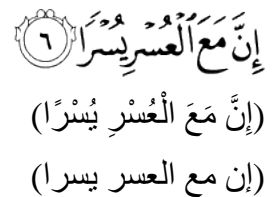 إِنَّ مَعَ ٱلْعُسْرِ يُسْرًا ٦
(إِنَّ مَعَ الْعُسْرِ يُسْرًا)
(إن مع العسر يسرا)